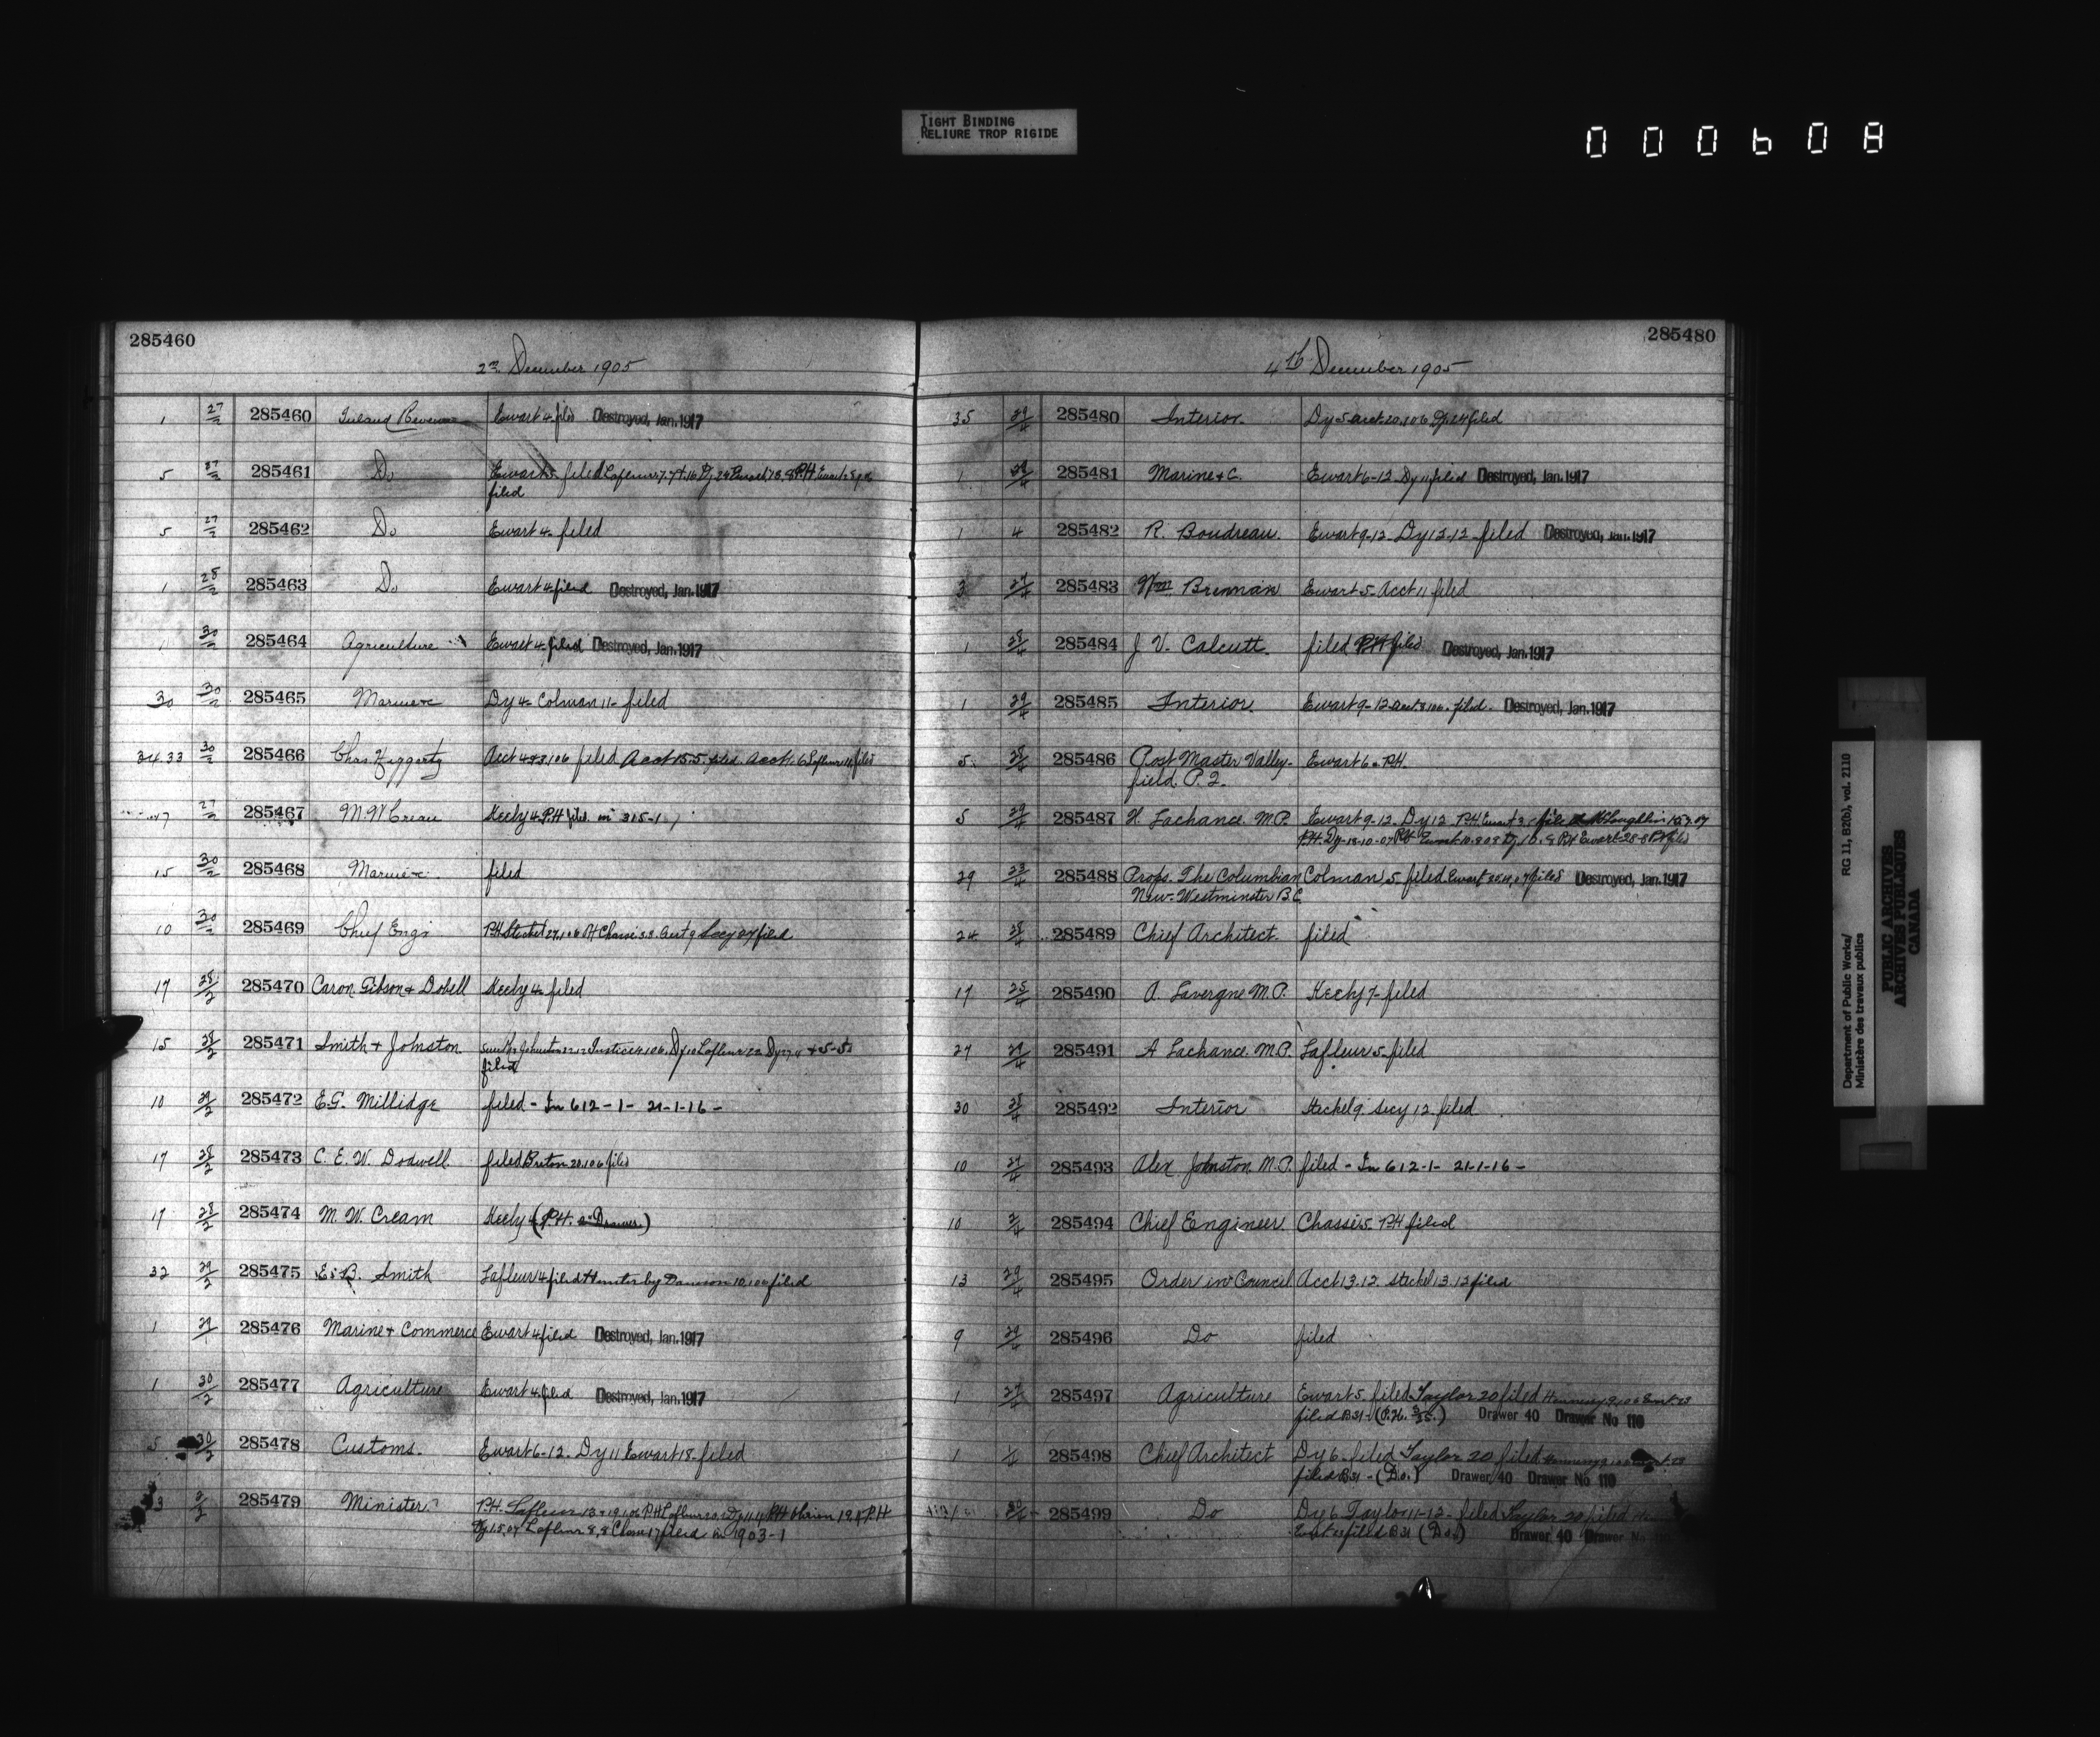 TIGHT BINDING
RELIURE TROP RIGIDE
000608
285460
2nd December 1905
1 27/2 285460 Inland Revenue Ewart 4 filed Destroyed, Jan. 1917
5 27/2 285461 Do Ewart 5 filed Lafleur
filed
5 27/2 285462 Do Ewart 4 filed
1 28/2 285463 Do Ewart 4 filed Destroyed, Jan. 1917
1 30/2 285464 Agriculture Ewart 4 filed Destroyed, Jan. 1917
30 30/2 285465 Marine &c Dy 4 Colman 11 - filed
34.33 30/2 285466 Chas. Heggarty Acct filed Acct 15.5. filed. Acct Lafleur filed
17 27/2 285467 M. W. Crean Keely 4 P.H filed in 315-1
15 30/2 285468 Marine &c. filed
10 30/2 285469 Chief Engr P.H Steckel 27.1.06 Secy filed
17 28/2 285470 Caron Gibson + Dobell Keely 4 filed
15 28/2 285471 Smith + Johnston Justice 4.1.06. Dy 10 Lafleur 22 Dy 27.4 + 5-5
filed
10 29/2 285472 E.G. Millidge filed - In 612-1- 21-1-16 -
17 28/2 285473 C. E. W. Dodwell filed Breton 20.1.06 filed
17 28/2 285474 M. W. Cream Keely 4 (P.H. Drawer)
32 29/2 285475 E. B. Smith Lafleur 4 filed Hunter by Dawson 10.1.06 filed
1 29/1 285476 Marine + Commerce Ewart 4 filed Destroyed, Jan. 1917
1 30/2 285477 Agriculture Ewart 4 filed Destroyed, Jan. 1917
5 30/2 285478 Customs. Ewart 6-12. Dy 11 Ewart 18 - filed
3 2/2 285479 Minister P.H. Lafleur 13 P.H Lafleur P.H Obrien P.H
Lafleur 8.8 filed in 1903-1
285480
4th December 1905
35 29/4 285480 Interior Dy 5 acct. 20.1.06 Dy. 24 filed
1 29/4 285481 Marine & C. Ewart 6-12 Dy 11 filed Destroyed, Jan. 1917
1 4 285482 R. Boudreau. Ewart 9-12 Dy 12-12 - filed Destroyed, Jan. 1917
3 27/4 285483 Wm Brennan Ewart 5 - Acct 11 filed
1 28/4 285484 J V. Calcutt. filed P.H filed Destroyed, Jan. 1917
1 29/4 285485 Interior. Ewart 9-12 acct. filed. Destroyed, Jan. 1917
5 28/4 285486 Post Master Valley- Ewart 6. P.H.
field. P. Q.
5 29/4 285487 H. Lachance. M.P. Ewart 9-12. Dy 12 P.H. Ewart McLoughlin
P.H. Dy-18-10-07 P.H Ewart P.H Ewart 28-8 P.H filed
29 23/4 285488 Props. The Columbian Colman 5 filed Ewart filed Destroyed, Jan. 1917
New-Westminster B.C.
24 28/4 285489 Chief Architect. filed
17 25/4 285490 A. Lavergne M.P. Keely 7 - filed
27 29/4 285491 A Lachance. M.P. Lafleur 5 - filed
30 28/4 285492 Interior Steckel 9. Secy 12. filed
10 27/4 285493 Alex Johnston. M.P. filed - In 612-1- 21-1-16 -
10 2/4 285494 Chief Engineer Chassé 5. P.H filed
13 29/4 285495 Order in Council. Acct 13.12. Steckel 13.12 filed
9 29/4 285496 Do filed
1 27/4 285497 Agriculture Ewart 5 filed Taylor 20 filed Hennessy 9.1.06 Ewart 23
filed B31 - (P.H. ) Drawer 40 Drawer No 110
1 285498 Chief Architect Dy 6 - filed Taylor 20 filed Hennessy
filed B31 - (Do.) Drawer 40 Drawer No 110
30/4 285499 Do Dy 6 Taylor 11-12 - filed Taylor 20 filed
Ewart 23 filed B31 (Do.) Drawer 40 Drawer No
Department of Public Works/ RG 11, B2(b), vol. 2110
Ministère des travaux publics
PUBLIC ARCHIVES
ARCHIVES PUBLIQUES
CANADA